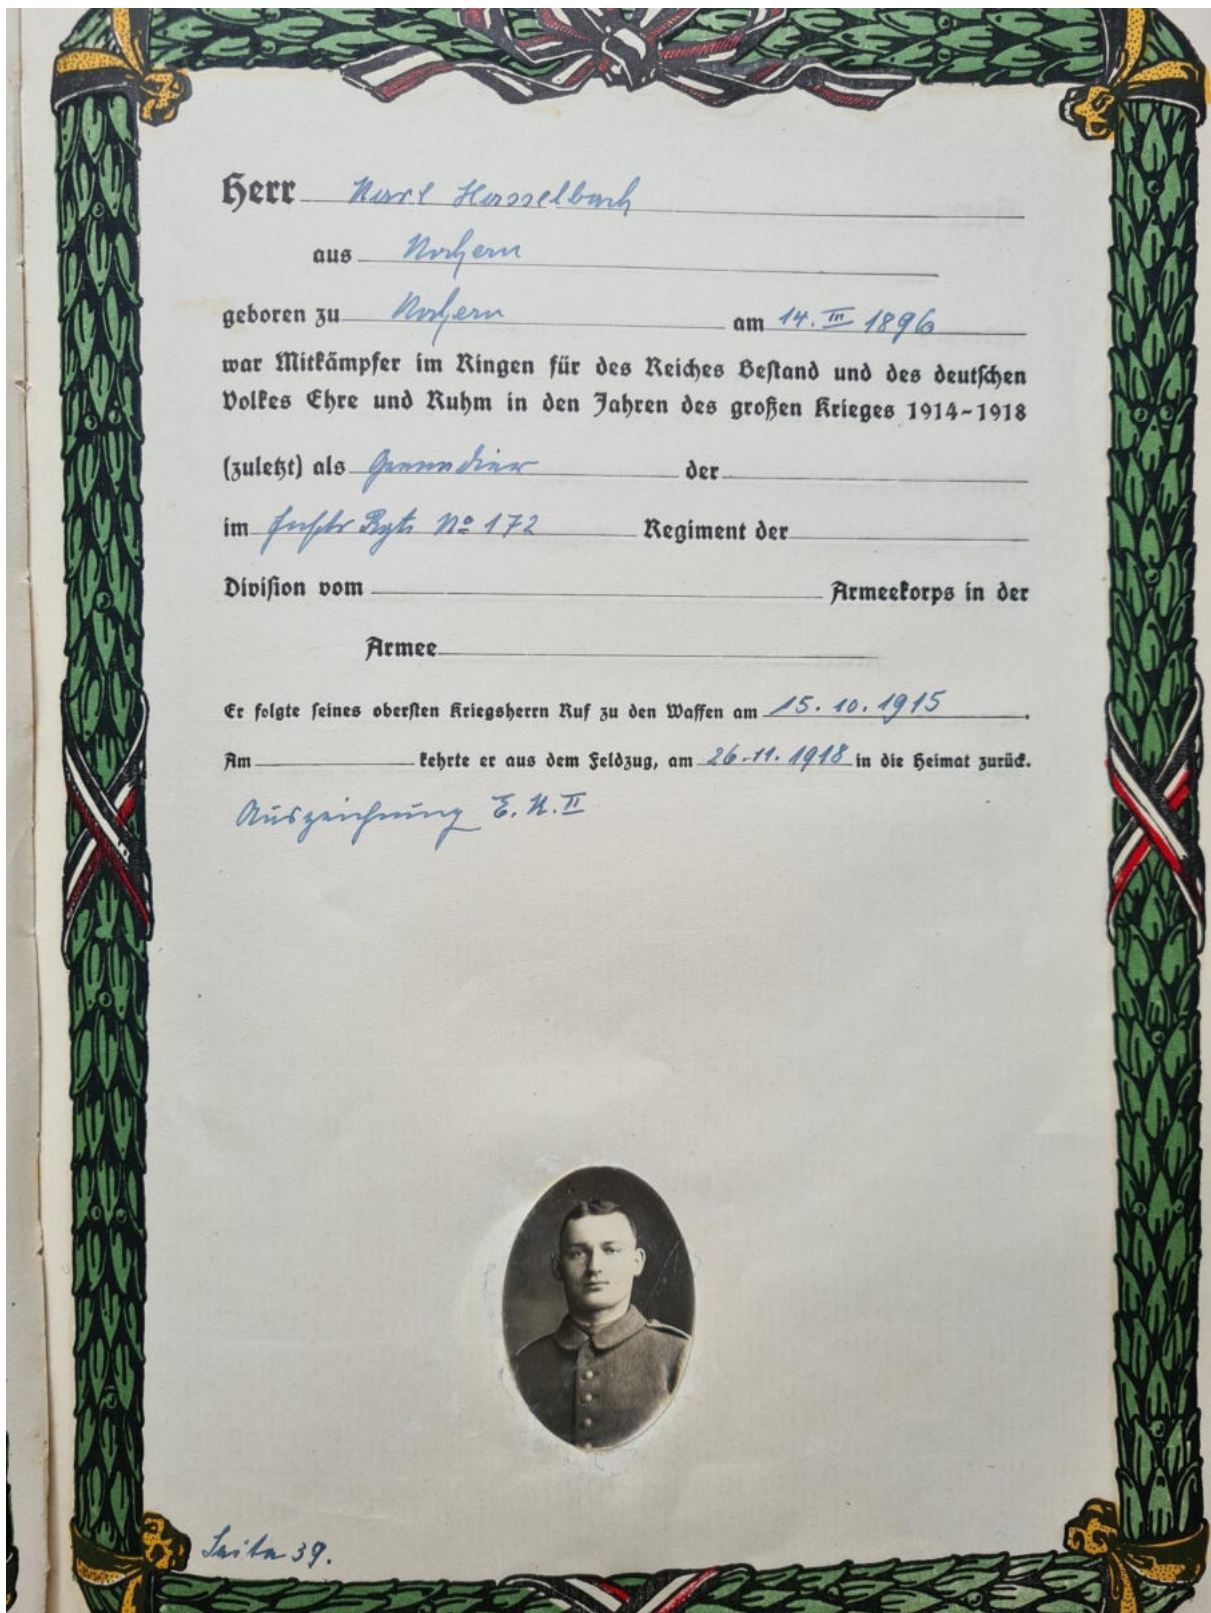 Herr Karl Hasselbach
aus Nochern
geboren zu Nochern am 14. III 1896
war Mitkämpfer im Ringen für des Reiches Bestand und des deutschen
Volkes Ehre und Ruhm in den Jahren des großen Krieges 1914-1918
(zuletzt) als Grenadier der
im Rgt. No 172 Regiment der
Division vom Armeekorps in der
Armee
Er folgte seines obersten Kriegsherrn Ruf zu den Waffen am 15. 10. 1915.
Am kehrte er aus dem Feldzug, am 26.11.1918 in die Heimat zurück.
Auszeichnung E. K. II
Seite 39.